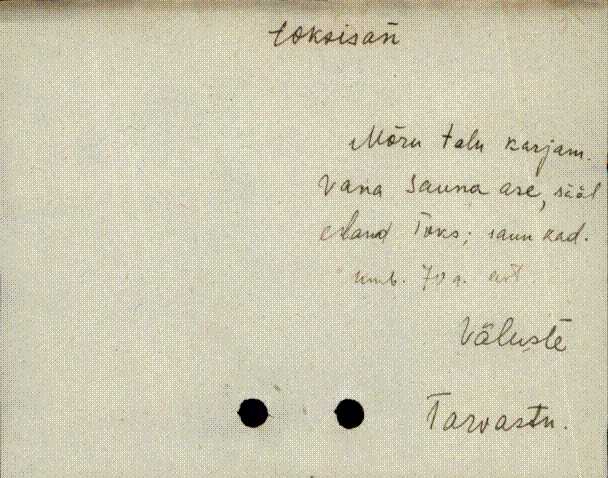 Mõru talu karjam.
Vana sauna ase, sääl
eland Toks; saun kad.
umb. 70 a. eest
Väluste
Tarvastu.